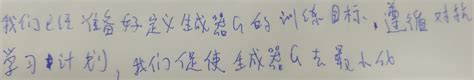 我们已经准备好定义生成器G的训练目标,遵循对抗
学习计划,我们促使生成器G去最小化